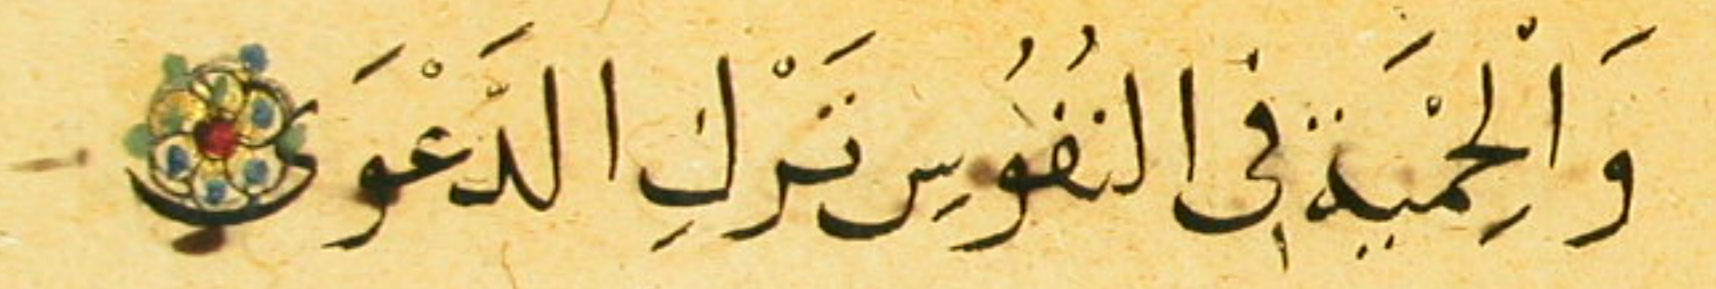 وَالْحِمْيَة فِي النُفُوسِ تَرْكِ الدَّعْوَى